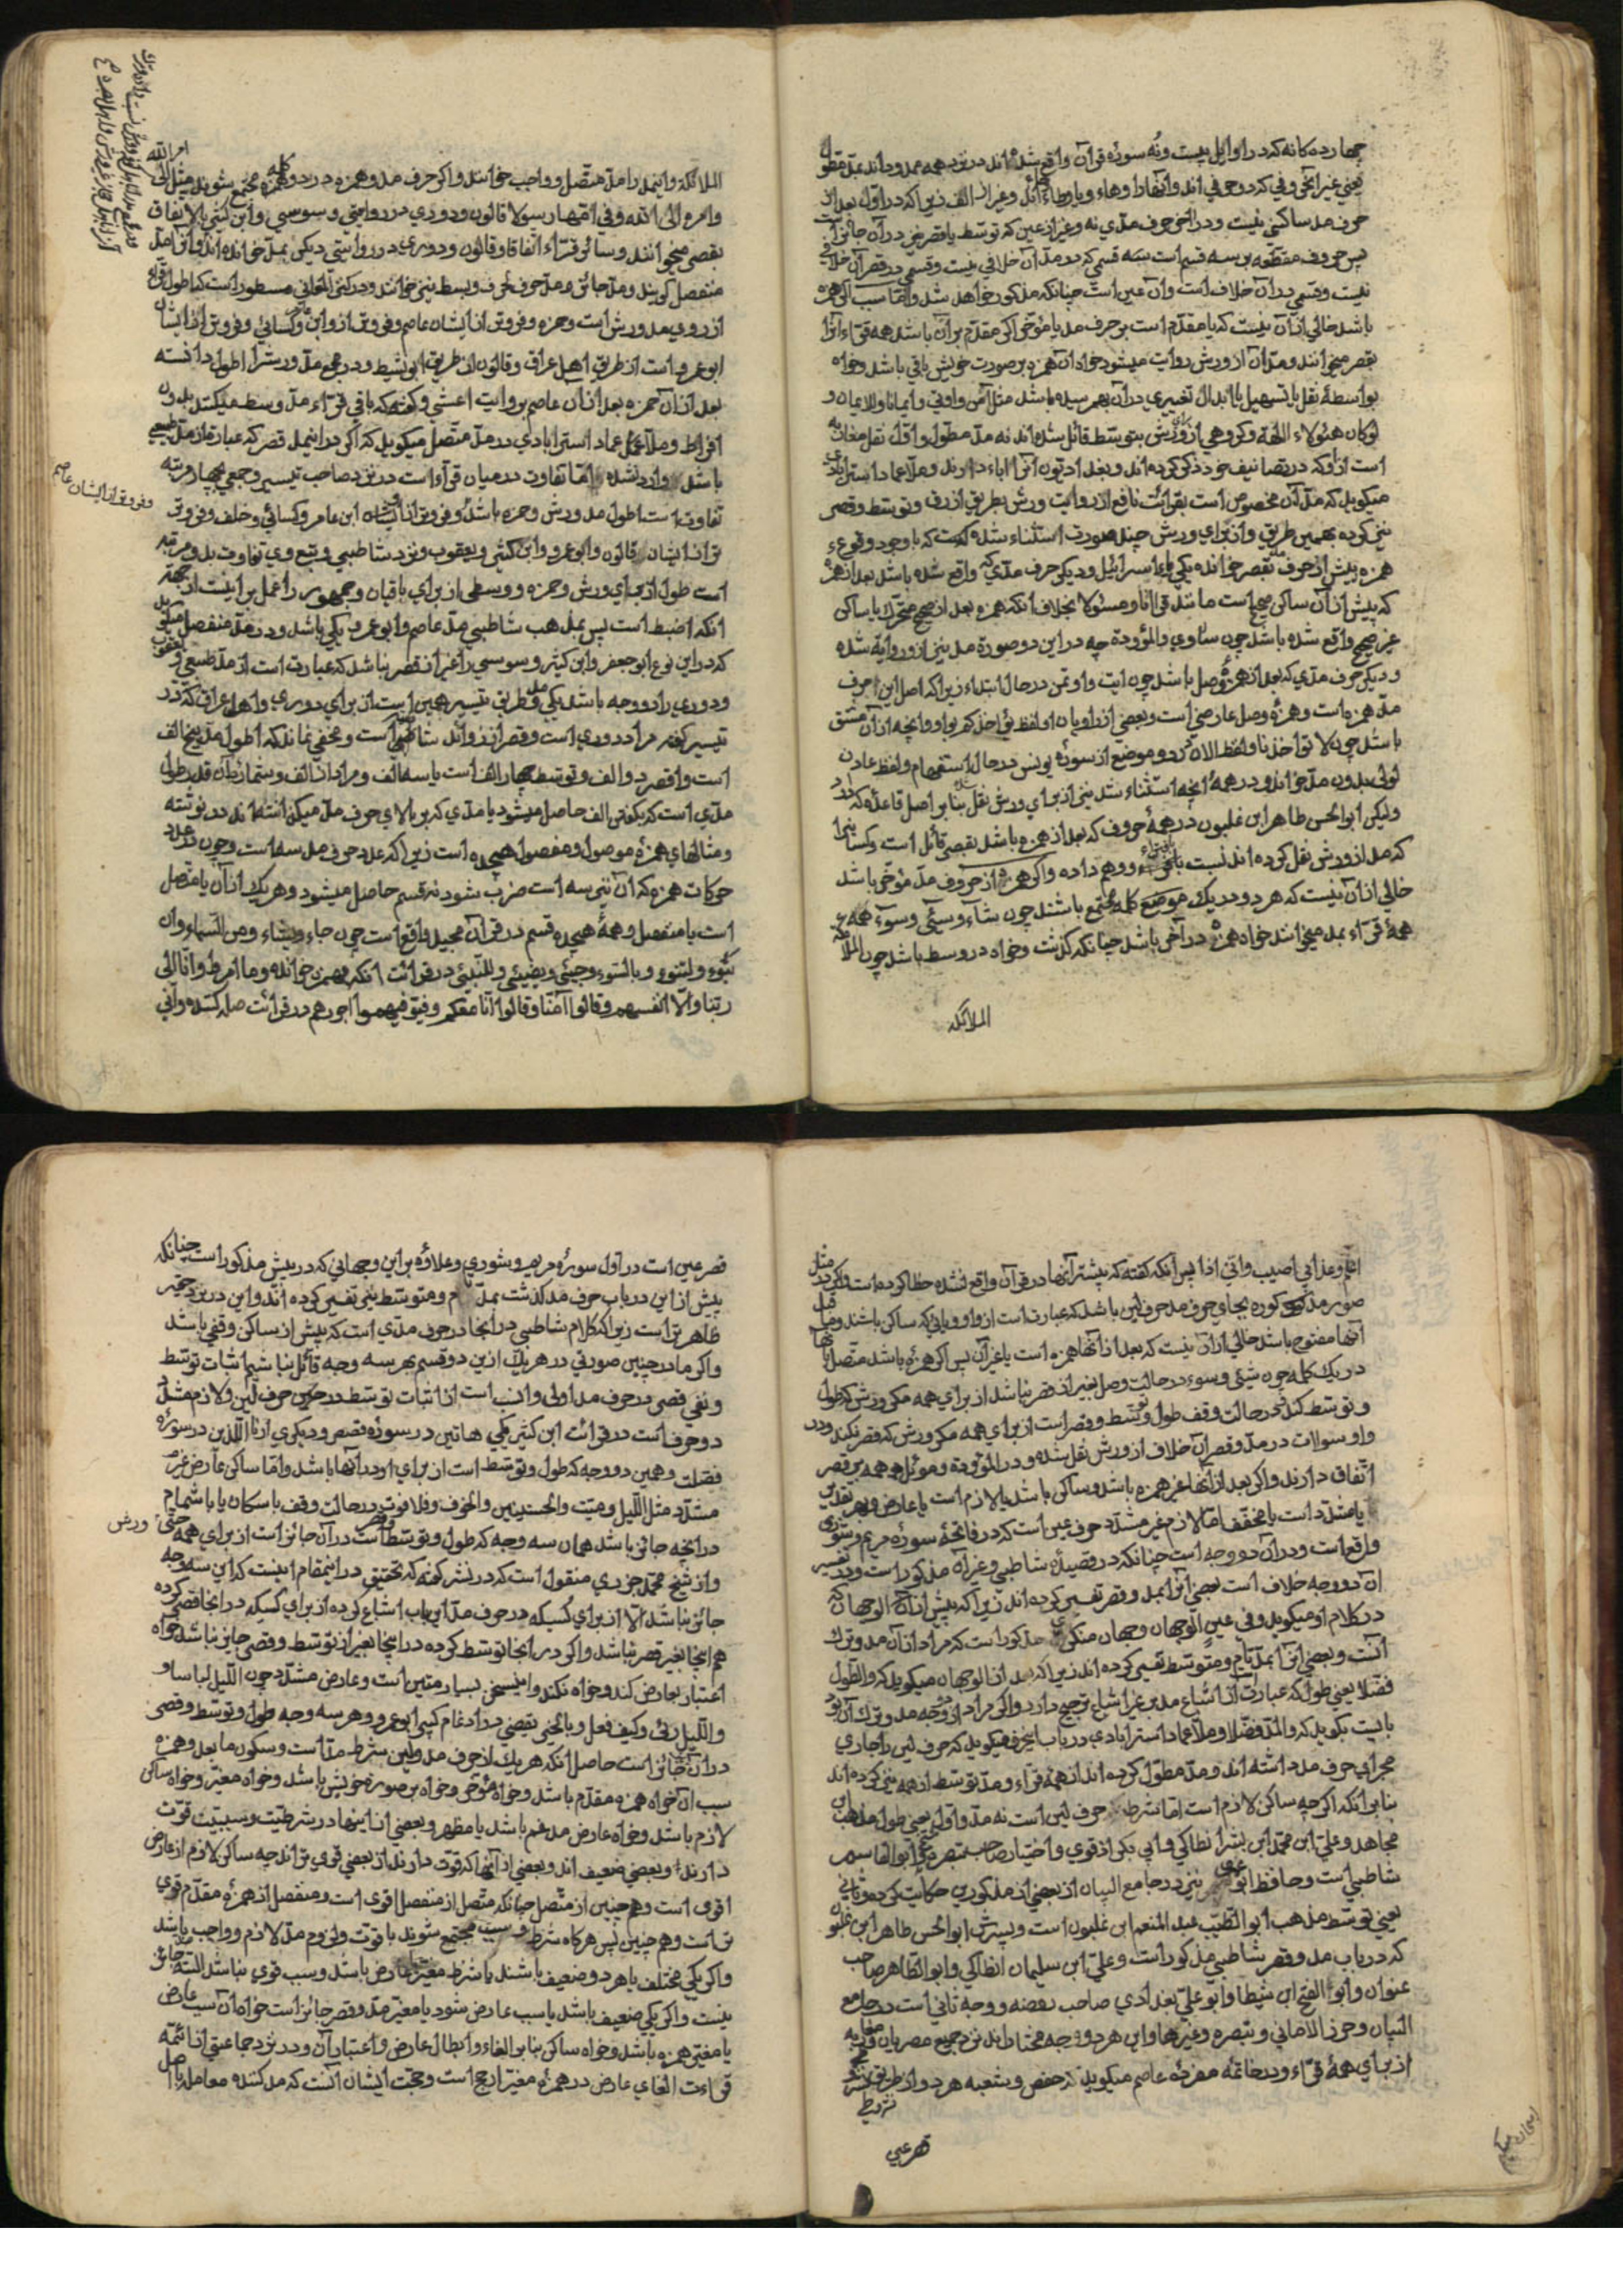 چهارده کانه که در اوایل بیست ونُه سورۀ قرآن واقع شده اند در نزد همه ممدوداند بمدّ مطوّل
یعنی غیر از
حرف مد ساکنی نیست ودر آخر حرف مدّی نه وغیر از عین که توسّط یا قصر نیز در آن جائز است
پس حروف مقطّعه بر سه قسم است قسمی که در مدّ آن خلافی نیست وقسمی در قصر آن خلافی
نیست وقسمی در آن خلاف است وآن عین است چنانکه مذکور خواهد شد وامّا سبب اگر همزه
باشد خالی از آن نیست که یا مقدّم است بر حرف مد یا مؤخّر اگر مقدّم بر آن باشد همه قرّاء آنرا
بقصر میخوانند ومدّ آن از ورش روایت میشود خواه آن همزه بر صورت خویش باقی باشد وخواه
بواسطۀ نقل یا تسهیل یا ابدال تغییری در آن بهم رسیده باشد مثل آمن واوتی وایمانا وللایمان و
لو کان هئولاء آلهة وکروهی از ورش بتوسّط قائل شده اند نه مدّ مطوّل واوّل نقل مغاربه
است از او که در تصانیف خود ذکر کرده اند وبغدادیّون آنرا اباء دارند وملّا عماد استرابادی
میکوید که مدّ آن مخصوص است بقرائت نافع از روایت ورش بطریق ازرق وتوسّط وقصر
نیز کرده بهمین طریق واز برای ورش چند صورت استثناء شده که با وجود وقوع
همزه پیش از حرف مد بقصر خوانده یکی یاء اسرائیل ودیکر حرف مدّی که واقع شده باشد بعد از همزۀ
که پیش از آن ساکن صحیح است مانند قرآنا ومسئولا بخلاف آنکه همزه بعد از صحیح متحرّک یا ساکن
غیر صحیح واقع شده باشد چون سآوی والمؤودة چه در این دو صورة مد نیز از او روایة شده
ودیکر حرف مدّی که بعد از همزۀ وصل باشد چون ایت واوتمن در حال ابتداء زیرا که اصل این حرف
مدّ همزه است وهمزۀ وصل عارضی است وبعضی از راویان او لفظ یؤاخذکم بواو وآنچه از آن مشتق
باشد چون لا تؤاخذنا ولفظ الآن در دو موضع از سورۀ یونس در حال استفهام ولفظ عادن
لولی بدون مدّ خوانده ودر همۀ آنچه استثناء شد نیز از برای ورش نقل شده بنا بر اصل قاعده که دارد
ولیکن ابو الحسن طاهر ابن غلبون در همۀ حروف که بعد از همزه باشد بقصر قائل است وکسانیرا
که مد از ورش نقل کرده اند نسبت داده واکر همزه از حروف مدّ مؤخّر باشد
خالی از آن نیست که هر دو در یک موضع کلمه مجتمع باشند چون شاء وسیئ وسوء همه
همۀ قرّاء بمد میخوانند خواه همزه در آخر باشد چنانکه کذشت وخواه در وسط باشد چون الملائکة
الملائکة

الملائکة واینمد را مدّ متّصل وواجب خوانند واکر حرف مد وهمزه در دو کلمه مجتمع شوند مثل الی امر الله
وامره الی الله وفی امّها رسولا قالون ودوری در روایتی وسوسی وابن کثیر بالاتفاق
بقصر میخوانند وسائر قرّاء اتّفاقا وقالون ودوری در روایتی دیکر بمدّ خوانده اند واین مدّ
منفصل کویند ومدّ جائز ومدّ حرف لحرف وبسط نیز خوانند ودر کنز المعانی مسطور است که اطول قرّاء
از روی مد ورش است وحمزه وفروتر از ایشان عاصم وفروتر از او ابن عامر وکسائی وفروتر از ایشان
ابو عمرو است از طریق اهل عراق وقالون از طریق ابو نشیط ودر مجمع مدّ ورش را اطول دانسته
بعد از آن حمزه بعد از آن عاصم بروایت اعشی وکفته که باقی قرّاء مدّ وسط میکشند بدون
افراط وملّا عماد استرابادی در مدّ متّصل میکوید که اکر در اینمد قصر که عبارة از مدّ طبیعی
باشد وارد نشده امّا تفاوت در میان قرّاء است در نزد صاحب تیسیر وجمعی بچهار مرتبه
تفاوت است اطول مد ورش وحمزه باشد وفروتر از ایشان ابن عامر وکسائی وخلف وفروتر
تر از ایشان قالون وابو عمرو وابن کثیر ویعقوب ونزد شاطبی وتبع وی تفاوت بدو مرتبه
است طول از برای ورش وحمزه ووسطی از برای باقیان وجمهور را عمل بر اینست از جهة
آنکه اضبط است پس بمذهب شاطبی مدّ عاصم وابو عمرو یکی باشد ودر مدّ منفصل میکوید
که در این نوع ابو جعفر وابن کثیر وسوسی را غیر از قصر نباشد که عبارت است از مدّ طبیعی
ودوری را دو وجه باشد یکی مد وطریق تیسیر همین است از برای دوری واهل عراق که در
تیسیر کفته مراد دوری است وقصر از زوائد شاطبی است ومخفی نماند که اطول مد پنج الف
است واقصر دو الف وتوسّط چهار الف است یا سه الف ومراد از الف ویتمان آن قدر طول
مدّی است که بکفتن الف حاصل میشود یا مدّی که بر بالای حرف مدّ میکذاشته اند در نوشته
ومثالهای همزۀ موصول ومفصول هیجده است زیرا که عدد حرف مد سه است وچون در عدد
حرکات همزه که آن نیز سه است ضرب شود نه قسم حاصل میشود وهر یک از آن یا متّصل
است یا منفصل وهمۀ هیجده قسم در قرآن مجید واقع است چون جاء ویشاء ومن السماء وان
تبوء ولتنوء وبالسوء وجیئ ویضیئ وللنبیئ در قرائت آنکه بهمزه خوانده وما امرط وانا الی
ربّنا والّا انفسهم وقالوا آمنّا وقالوا انّا معکم وفیوفّیهموا اجورهم در قرائت صله کننده وانّی
وفروتر از ایشان عاصم

انّهم وعذابی اصیب وانّی اذا پس آنکه کفته که بیشتر آنها در قرآن واقع نشده خطا کرده است واکر در مثل
صور مذکوره بجای حرف مد حرف لین باشد که عبارت است از واو ویایی که ساکن باشند وقبل
آنها مفتوح باشد خالی از آن نیست که بعد از آنها همزه است یا غیر آن پس اکر همزه باشد متّصل بآنها
در یک کلمه چون شیئ وسوء در حالت وصل بغیر از قصر نباشد از برای همه مکر ورش که طول
وتوسّط کند ودر حالت وقف طول وتوسّط وقصر است از برای همه مکر ورش که قصر نکند ودر
واو سوآت در مدّ وقصر آن خلاف از ورش نقل شده ودر الموؤدة وموئلا همه بر قصر
اتّفاق دارند واکر بعد از آنها غیر همزه باشد وساکن باشد یا لازم است یا عارض وبهر تقدیر
یا مشدّد است یا مخفّف امّا لازم غیر مشدّد حرف عین است که در فاتحۀ سورۀ مریم وشوری
واقع است ودر آن دو وجه است چنانکه در قصیدۀ شاطبی وغیر آن مذکور است ودر تفسیر
آن دو وجه خلاف است بعضی آنرا بمد وقصر تفسیر کرده اند زیرا که پیش از آن الوجهان که
در کلام او میکوید وفی عین الوجهان وجهان منکر مذکور است که مراد از آن مد وترک
آنست وبعضی آنرا بمدّ تام ومتوسّط تفسیر کرده اند زیرا که بعد از الوجهان میکوید که والطول
فضّلا یعنی طول که عبارت از اشباع مد بر غیر اشباع ترجیح دارد واکر مراد از دو وجه مد وترک آن بود
بایست بکوید که والمدّ فضّلا وملّا عماد استرابادی در باب این حرف میکوید که حرف لین را جاری
مجرای حرف مد داشته اند ومدّ مطوّل کرده اند از همۀ قرّاء ومدّ توسّط از همه نیز کرده اند
بنا بر آنکه اکرچه ساکن لازم است امّا شرط حرف لین است نه مدّ واوّل یعنی طول مذهب ابن
مجاهد وعلیّ ابن محمّد ابن بشر انطاکی وابی بکر اذفوی واختیار صاحب تبصره مکّی وابو القاسم
شاطبی است وحافظ ابو عمرو نیز در جامع البیان از بعضی از مذکورین حکایت کرده وثانی
یعنی توسّط مذهب ابو الطیّب عبد المنعم ابن غلبون است وپسرش ابو الحسن طاهر ابن غلبون
که در باب مد وقصر شاطبی مذکور است وعلیّ ابن سلیمان انطاکی وابو الطاهر صاحب
عنوان وابو الفتح ابن شیطا وابو علیّ بغدادی صاحب روضه ووجه ثانی است در جامع
البیان وحرز الامانی وتبصره وغیرها واین هر دو وجه مختاراند نزد جمیع مصریان ومغاربه
از برای همۀ قرّاء ودر خاتمۀ مفردۀ عاصم میکوید که حفص وشعبه هر دو از طریق
قصر عین

قصر عین است در اوّل سورۀ مریم وشوری وعلاوه بر این وجهانی که در پیش مذکور است چنانکه
پیش از این در باب حرف مد کذشت بمدّ تام ومتوسّط نیز تفسیر کرده اند واین در نزد حقیر
ظاهر تر است زیرا که کلام شاطبی در آنجا در حرف مدّی است که پیش از ساکن وقفی باشد
واکر ما در چنین صورتی در هر یک از این دو قسم بهر سه وجه قائل نباشیم اثبات توسّط
ونفی قصر در حرف مد اولی وانسب است از اثبات توسّط در حرف لین ولازم مشدّد
دو حرف است در قرائت ابن کثیر یکی هاتین در سورۀ قصص ودیکری ارنا اللذین در سورۀ
فصّلت وهمین دو وجه که طول وتوسّط است از برای او در آنها باشد وامّا ساکن عارض غیر
مشدّد مثل اللیل ومیّت والحسنیین والخوف وفلا فوت در حالت وقف باسکان یا باشمام
در آنچه جائز باشد همان سه وجه که طول وتوسّط وقصر است در آن جائز است از برای همه حتّی ورش
واز شیخ محمّد جزری منقول است که در نشر کفته که تحقیق در اینمقام اینست که این سه وجه
جائز نباشد الّا از برای کسیکه در حرف مدّ این باب اشباع کرده از برای کسیکه در آنجا قصر کرده
هم اینجا بغیر قصر نباشد واکر در آنجا توسّط کرده در اینجا بغیر از توسّط وقصر جائز نباشد خواه
اعتبار بعارض کند وخواه نکند واینسخن بسیار متین است وعارض مشدّد چون اللیل لباسا و
واللیل رای وکیف فعل وبالخیر بقصر در ادغام کبیر ابو عمرو وهر سه وجه طول وتوسّط وقصر
در آن جائز است حاصل آنکه هر یک از حرف مد ولین شرط مدّ است وسکون ما بعد وهمزه
سبب آن خواه همزه مقدّم باشد وخواه مؤخّر وخواه بر صورة خویش باشد وخواه مغیّر وخواه ساکن
لازم باشد وخواه عارض مدغم باشد یا مظهر وبعضی از اینها در شرطیّت وسببیّت قوّت
دارند وبعضی ضعیف اند وبعضی از آنها که قوّت دارند از بعضی قوی تر اند چه ساکن لازم از عارض
اقوی است وهمچنین از متّصل چنانکه متّصل از منفصل اقوی است ومنفصل از همزۀ مقدّم قوی
تر است وهم چنین پس هر کاه شرط وسبب مجتمع شوند با قوّت ولزوم مدّ لازم وواجب باشد
واکر یکی مختلف یا هر دو ضعیف باشند یا شرط مغیّر یا عارض باشد وسبب قوی نباشد البتّه مد جائز
نیست واکر یکی ضعیف باشد یا سبب عارض شود یا مغیّر مدّ وقصر جائز است خواه آن سبب عارض
یا مغیّر همزه باشد وخواه ساکن بنا بر الغاء وابطال عارض واعتبار آن ودر نزد جماعتی از ائمّه
قراءت الغای عارض در همزۀ مغیّر ارجح است وحجّت ایشان آنست که مد کننده معامله با اصل